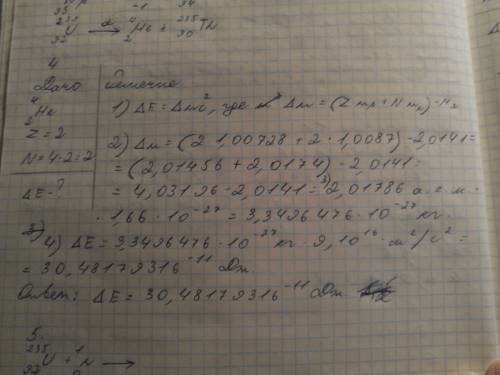 235 92 U α→ 4 2 He + 235 90 Th
4
Дано
4 2 He
Z = 2
N = 4-2=2
ΔE-?
Решение
1) ΔE = Δmc², где Δm = (Z mp + N mn) -
2) Δm = (2 1,00728 + 2 · 1,0087) - 2,0141 =
= (2,01456 + 2,0174) - 2,0141 =
= 4,03196 - 2,0141 = 2,01786 а.е.м.
· 1,66 · 10⁻²⁷ = 3,3496476 · 10⁻²⁷ кг.
4) ΔE = 3,3496476 · 10⁻²⁷ кг · 9,10¹⁶ м²/с² =
= 30,48179316⁻¹¹ Дж
Ответ: ΔE = 30,48179316⁻¹¹ Дж
5.
235 92 U + 1 0 n →